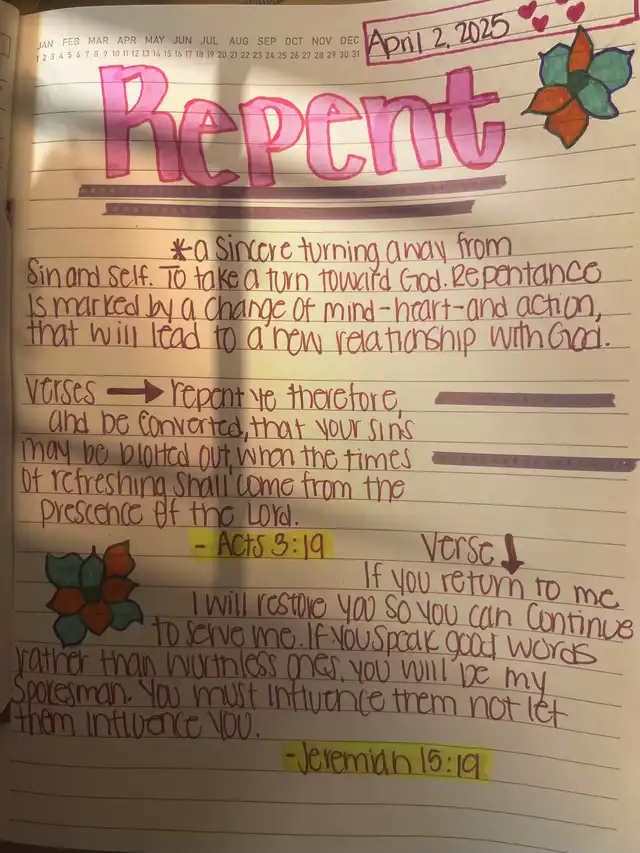 JAN FEB MAR APR MAY JUN JUL AUG SEP OCT NOV DEC
1 2 3 4 5 6 7 8 9 10 11 12 13 14 15 16 17 18 19 20 21 22 23 24 25 26 27 28 29 30 31
April 2, 2025
Repent
*a sincere turning away from
Sin and self. To take a turn toward God. Repentance
Is marked by a change of mind-heart-and action,
that will lead to a new relationship with God.
Verses → repent ye therefore,
and be converted, that your sins
may be blotted out, when the times
of refreshing shall come from the
prescence of the Lord.
- Acts 3:19
Verse ↓
If you return to me
I will restore you so you can continue
to serve me. If you speak good words
rather than wurthless ones, you will be my
spokesman. You must influence them not let
them influence you.
-Jeremiah 15:19